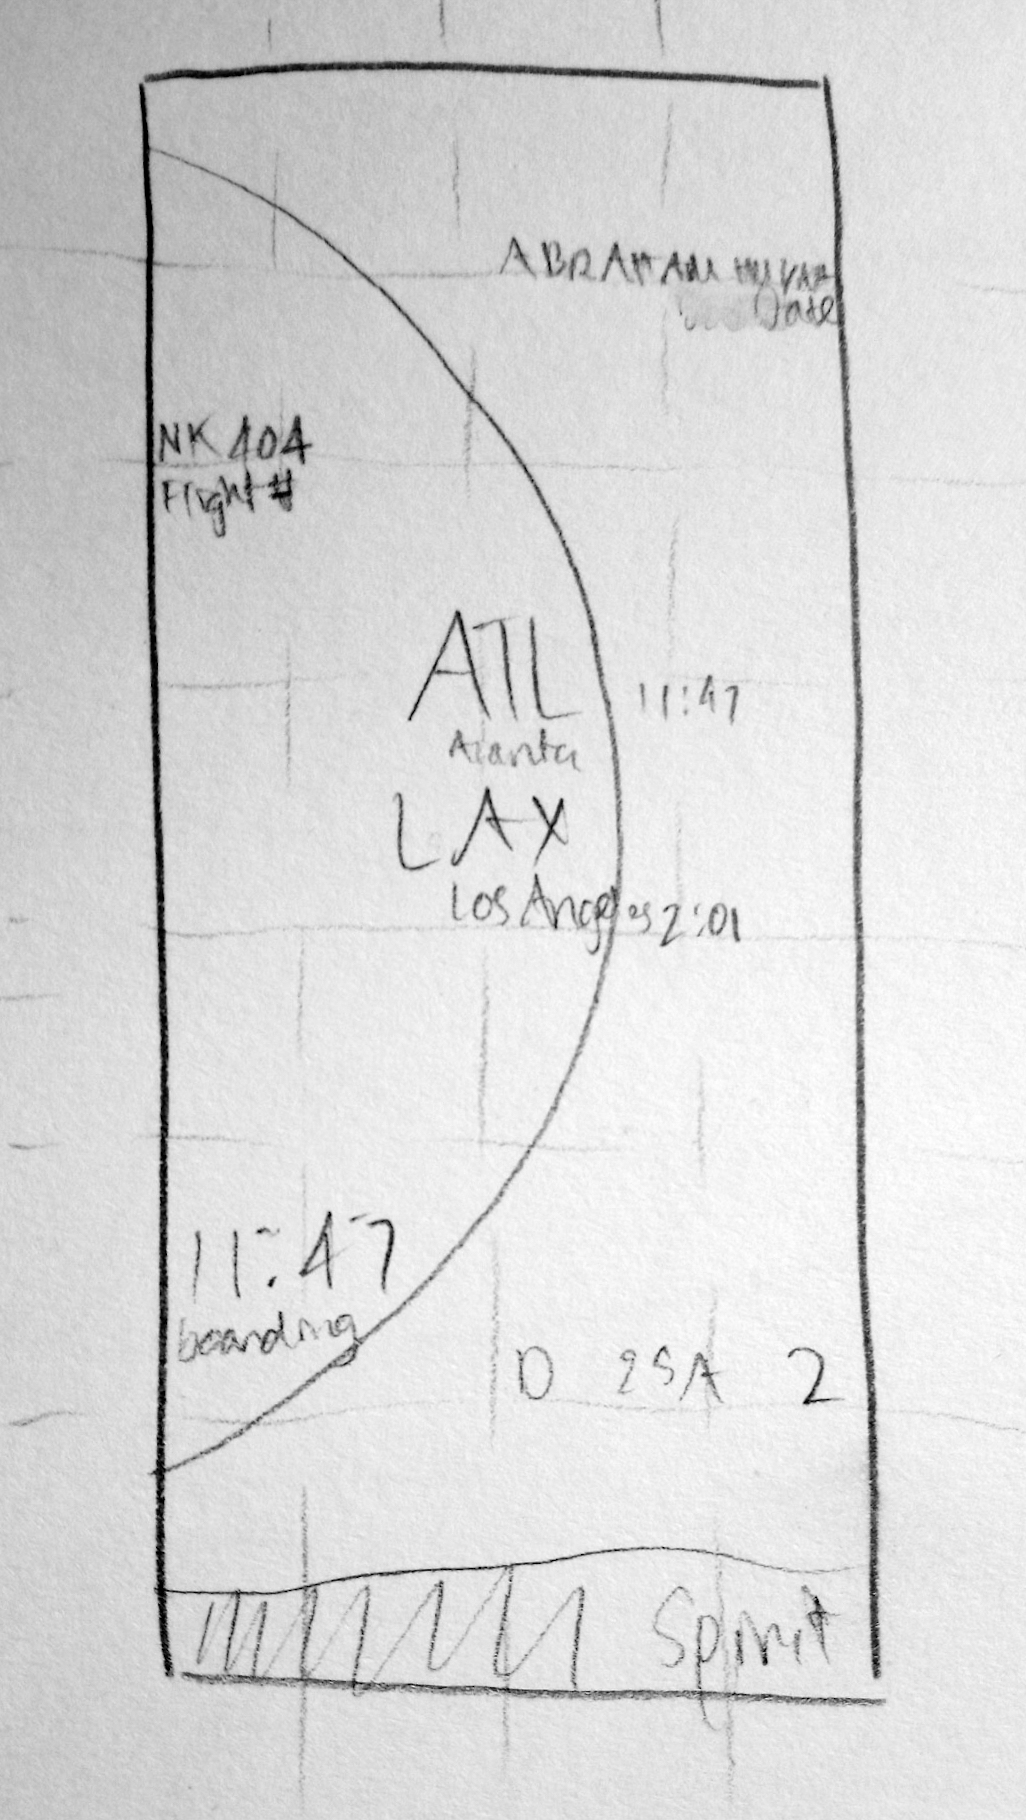 ABRAHAM
Date
NK 404
Flight #
ATL
11:47
Atlanta
LAX
Los Angeles 2:01
11:47
boarding
D 25A 2
Spirit